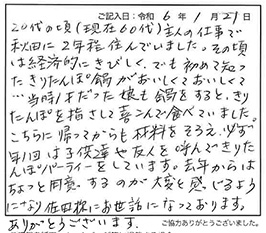 ご記入日：令和 6 年 1 月 21 日
20代の頃(現在60代)主人の仕事で
秋田に2年程住んでいました。その頃
は経済的にきびしく、でも初めて知っ
たきりたんぽ鍋がおいしくておいしくて
…当時1才だった娘も鍋をすると、きり
たんぽを指さして喜こんで食べていました。
こちらに帰ってからも材料をそろえ必ず
年1回は子供達や友人を呼んできりた
んぽパーティーをしています。去年からは
ちょっと用意するのが大変と感じるよう
になり佐田松にお世話になっております。
ありがとうございます。
ご協力ありがとうございました。